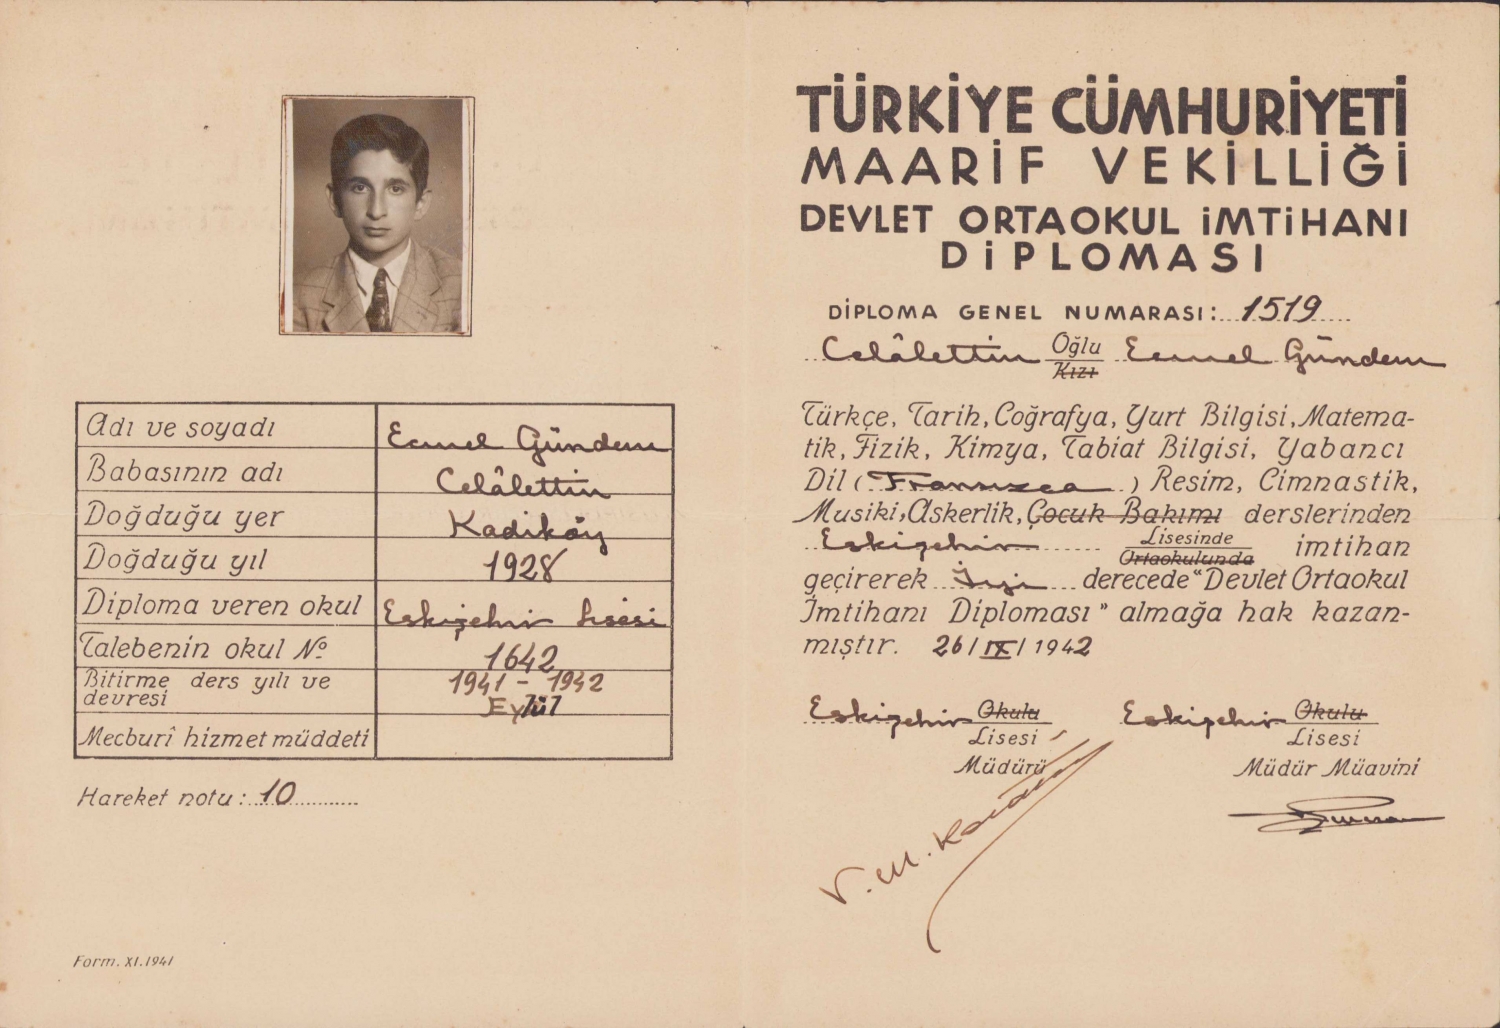 Adı ve soyadı Ecmel Gündem
Babasının adı Celâlettin
Doğduğu yer Kadıköy
Doğduğu yıl 1928
Diploma veren okul Eskişehir Lisesi
Talebenin okul No 1642
Bitirme ders yılı ve devresi 1941 - 1942 Eylül
Mecburî hizmet müddeti
Hareket notu: 10
Form. XI.1941
TÜRKİYE CÜMHURİYETİ
MAARİF VEKİLLİĞİ
DEVLET ORTAOKUL İMTİHANI
DİPLOMASI
DİPLOMA GENEL NUMARASI: 1519
Celâlettin Oğlu Kızı Ecmel Gündem
Türkçe, Tarih, Coğrafya, Yurt Bilgisi, Matema-
tik, Fizik, Kimya, Tabiat Bilgisi, Yabancı
Dil (Fransızca) Resim, Cimnastik,
Musiki, Askerlik, Çocuk Bakımı derslerinden
Eskişehir Lisesinde Ortaokulunda imtihan
geçirerek İyi derecede "Devlet Ortaokul
İmtihanı Diploması" almağa hak kazan-
mıştır. 26/IX/1942
Eskişehir Okulu Eskişehir Okulu
Lisesi Lisesi
Müdürü Müdür Müavini